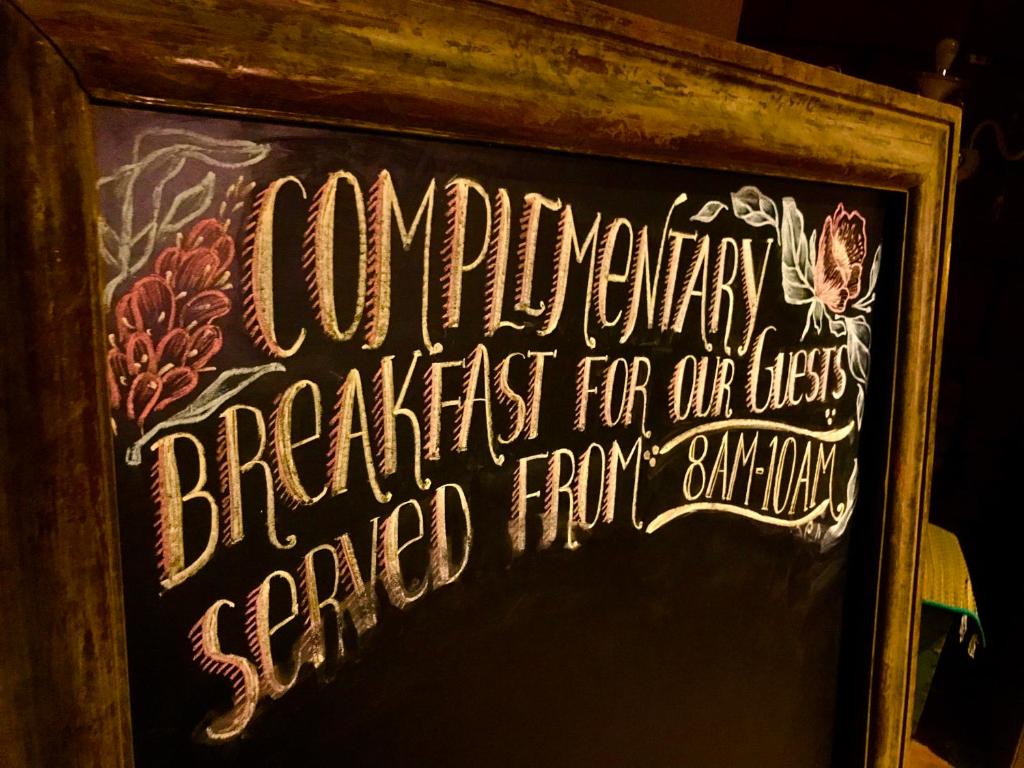 COMPLIMENTARY
BREAKFAST FOR OUR GUESTS
SERVED FROM: 8AM-10AM